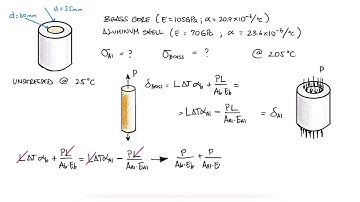 d=60mm d=25mm
BRASS CORE (E=105GPa ; α= 20.9×10⁻⁶/°C)
ALUMINUM SHELL (E= 70GPa ; α= 23.6×10⁻⁶/°C)
σAl = ? σBrass = ? @ 205°C
UNSTRESSED @ 25°C
P
P
δBrass = LΔTαb + PL/Ab·Eb =
= LΔTαAl − PL/AAl·EAl = δAl
LΔTαb + PL/Ab·Eb = LΔTαAl − PL/AAl·EAl → P/Ab·Eb + P/AAl·E